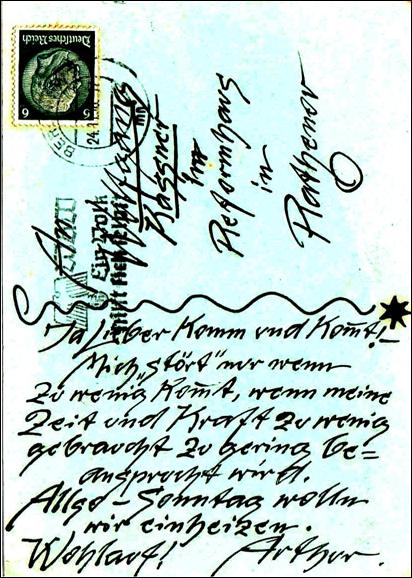 Deutsches Reich
6 6
24.1
An
Wolfgang
Kassner
im
Reformhaus
in
Rathenow
Ein Volk
hilft sich selbst
Ja Lieber Komm und Kom̅t!-
Mich „stört" nur wenn
zu wenig Kom̅t, wenn meine
Zeit und Kraft zu wenig
gebraucht zu gering be=
ansprucht wird.
Also - Sonntag wolln
wir einheizen.
Wohlauf! Arthur.